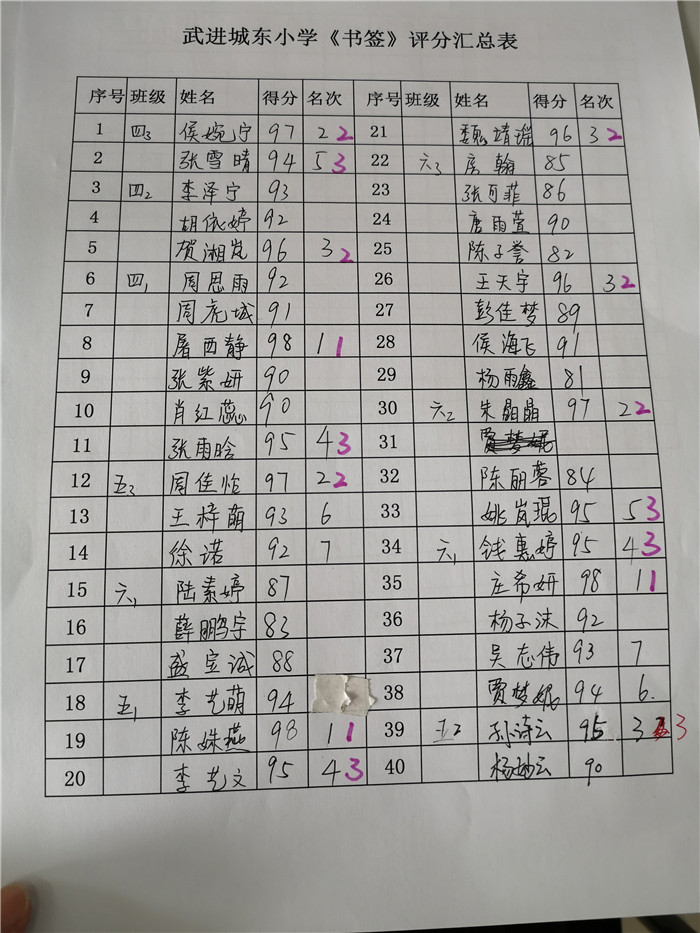 武进城东小学《书签》评分汇总表
序号 班级 姓名 得分 名次 序号 班级 姓名 得分 名次
1 四3 侯婉宁 97 2 2 21 魏靖瑶 96 3 2
2 张雪晴 94 5 3 22 六3 房翰 85
3 四2 李泽宁 93 23 张可菲 86
4 胡依婷 92 24 唐雨萱 90
5 贺湘岚 96 3 2 25 陈子誉 82
6 四1 周思雨 92 26 王天宇 96 3 2
7 周虎城 91 27 彭佳梦 89
8 屠西静 98 1 1 28 侯海飞 91
9 张紫妍 90 29 杨雨鑫 81
10 肖红蕊 90 30 六2 朱晶晶 97 2 2
11 张雨晗 95 4 3 31
12 五3 周佳怡 97 2 2 32 陈丽蓉 84
13 王梓萌 93 6 33 姚岚琨 95 5 3
14 徐诺 92 7 34 六1 钱惠婷 95 4 3
15 六1 陆素婷 87 35 庄希妍 98 1 1
16 薛鹏宇 83 36 杨子沫 92
17 盛宝诚 88 37 吴志伟 93 7
18 五1 李艺萌 94 38 贾梦妮 94 6.
19 陈姝燕 98 1 1 39 五2 孙诗云 95 3 3
20 李艺文 95 4 3 40 杨灿云 90